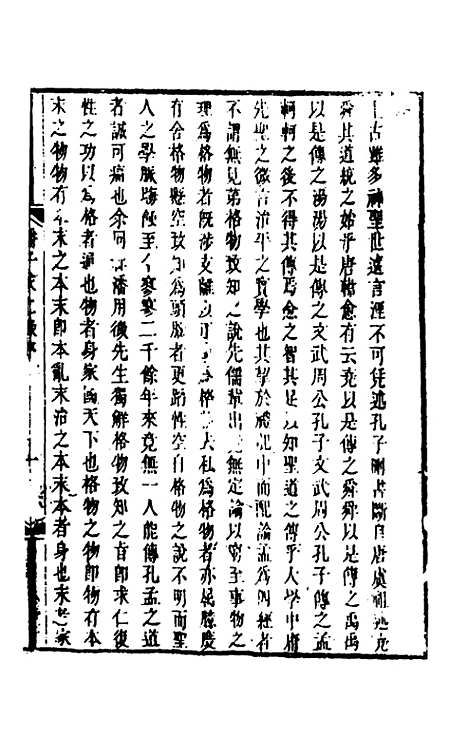 上古雖多神聖世遠言湮不可凭述孔子刪書斷自唐虞祖述堯
舜其道統之始乎唐韓愈有云堯以是傳之舜舜以是傳之禹禹
以是傳之湯湯以是傳之文武周公孔子文武周公孔子傳之孟
軻軻之後不得其傳焉愈之智其足以知聖道之傳乎大學中庸
先聖之微言治平之實學也其挐於禮記中而配論孟為四經者
不謂無見第格物致知之說先儒輩出迄無定論以窮至事物之
理為格物既涉支離以可去私為格物者亦屬
有舍格物懸空致知為頭腦者更蹈性空自格物之說不明而聖
人之學脈晦蝕至今寥寥二千餘年來竟無一人能傳孔孟之道
者誠可痛也余同潘用微先生獨解格物致知之旨即求仁復
性之功以為格者通也物者身家國天下也格物之物即物有本
末之物物有本末之本末即本亂末治之本末本者身也末者家
潘子求仁錄序